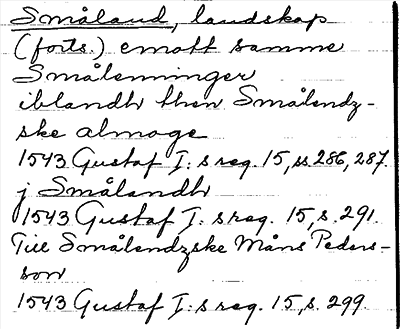 Småland, landskap
(forts.) emott samme
Smålenninger
iblandh then Smålendz-
ske almoge
1543 Gustaf I:s reg. 15, ss 286, 287.
j Smålandh
1543 Gustaf I:s reg. 15, s. 291.
Till Smålendzske Måns Peders-
son
1543 Gustaf I:s reg. 15, s. 299.